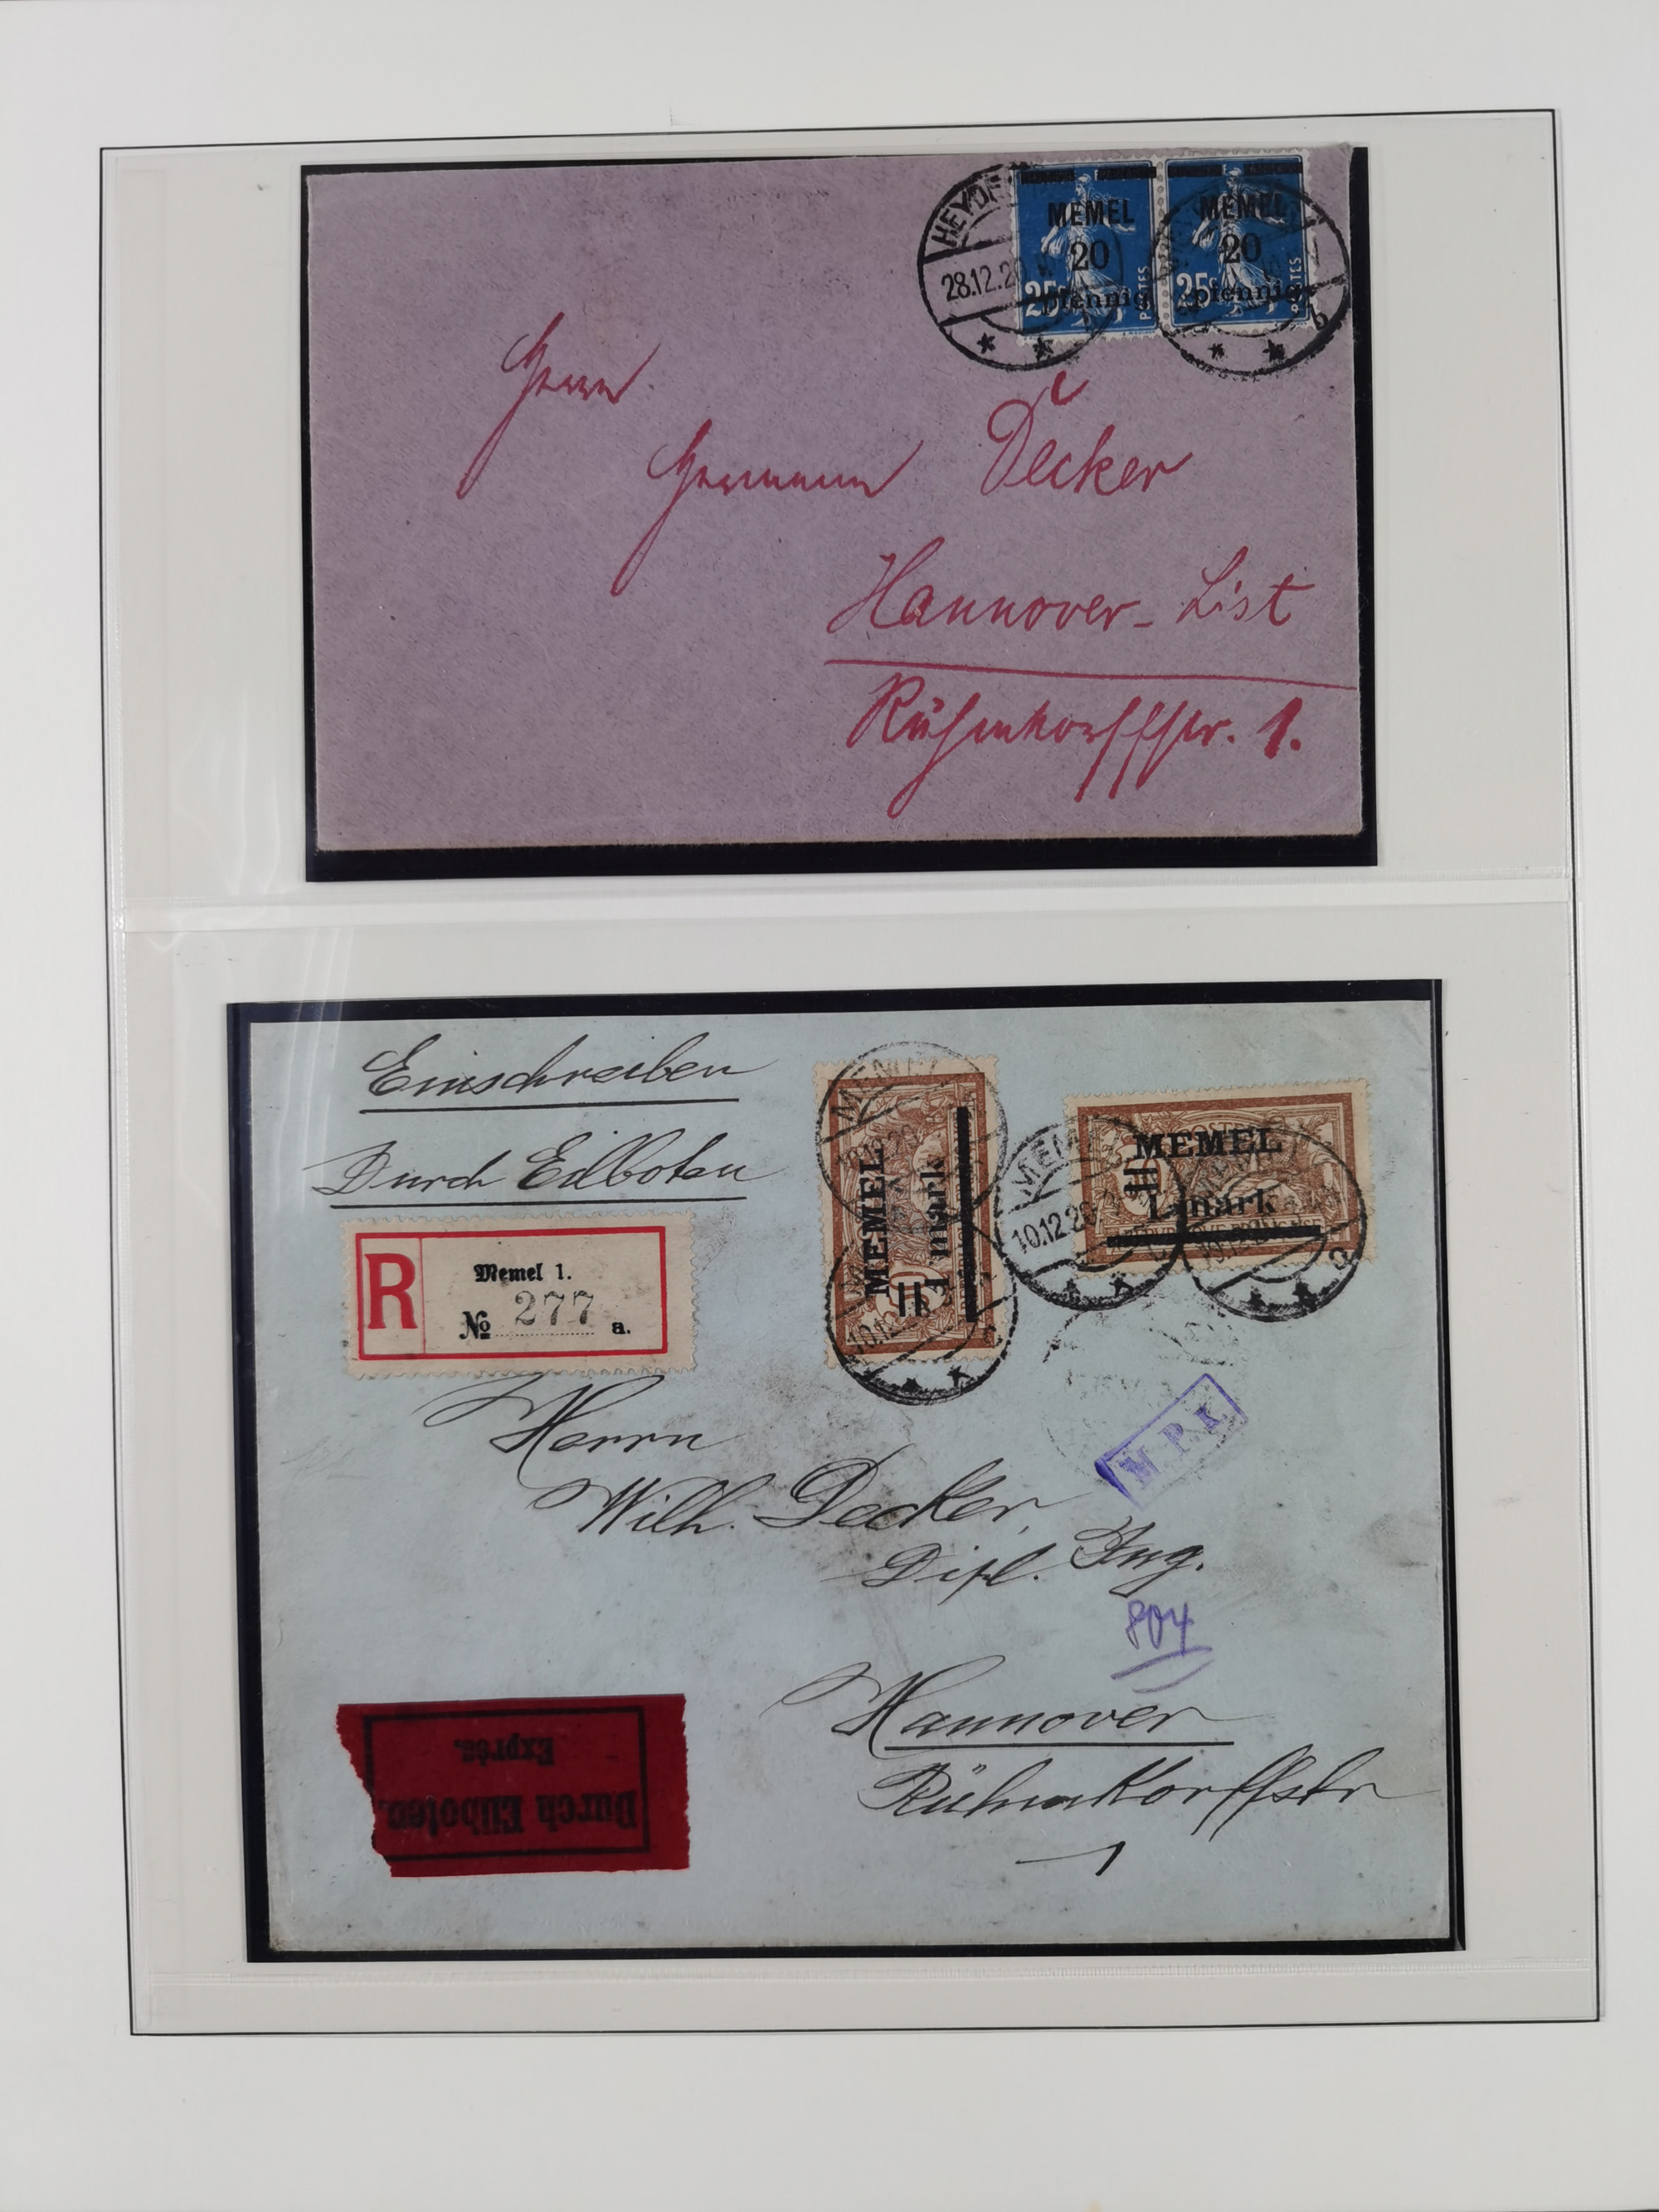 HEYDE
28.12.20
MEMEL
20
Pfennig
25c
POSTES
MEMEL
20
Pfennig
25c
POSTES
b
Herrn
Hermann Decker
Hannover-List
Rühmkorffstr. 1.
Einschreiben
Durch Eilboten
R
Memel 1.
№ 277 a.
MEMEL
1 mark
MEMEL
1 mark
MEMEL
10.12.20
a
M.P.K
Herrn
Wilh. Decker,
Dipl. Ing.
804
Hannover
Rühmkorffstr
1
Durch Eilboten.
Exprès.